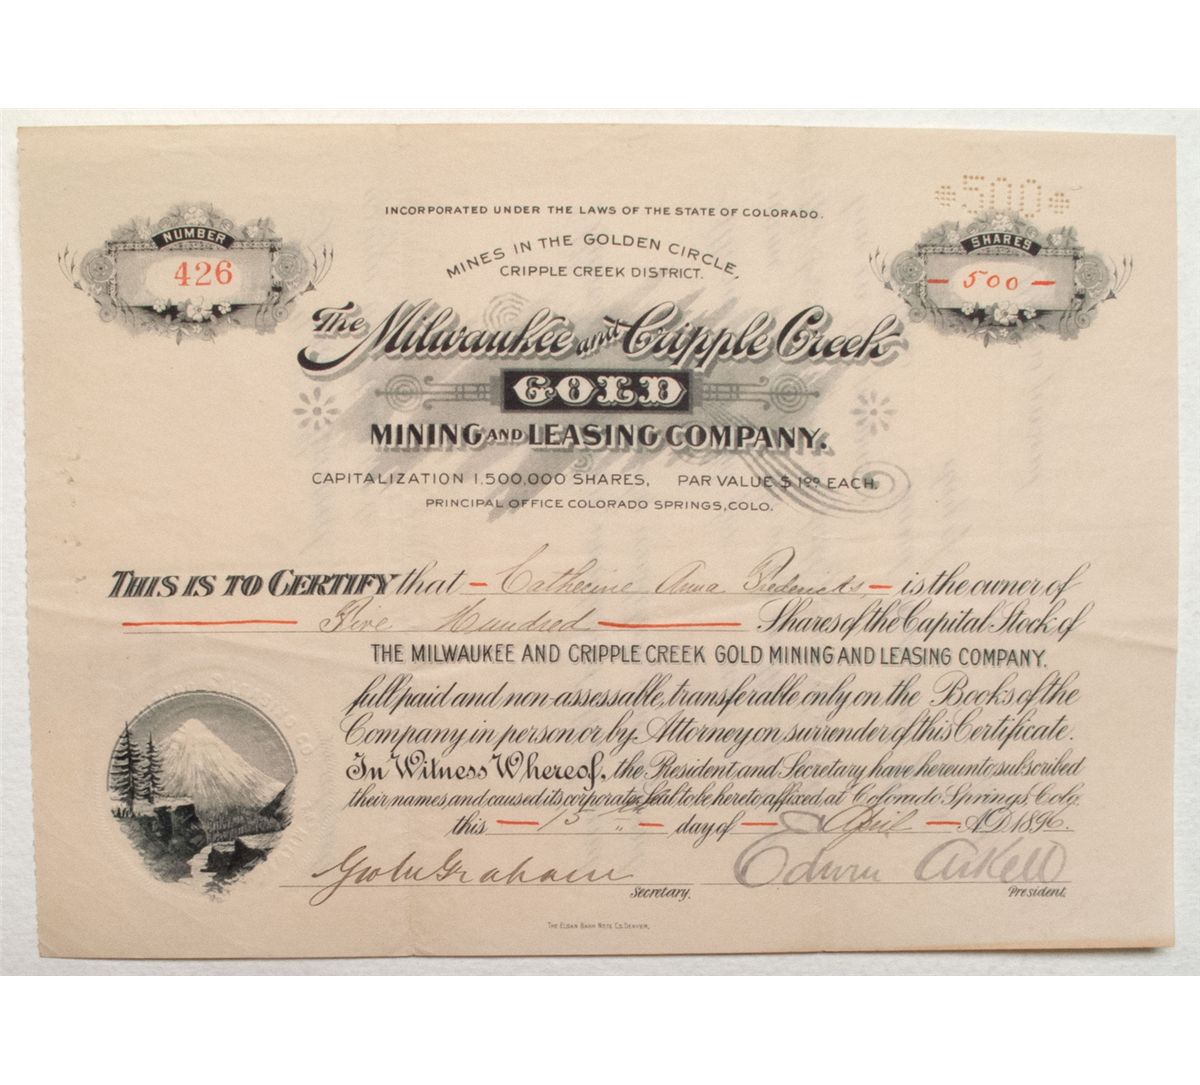 *500*
INCORPORATED UNDER THE LAWS OF THE STATE OF COLORADO.
NUMBER
426
SHARES
— 500 —
MINES IN THE GOLDEN CIRCLE,
CRIPPLE CREEK DISTRICT.
The Milwaukee and Cripple Creek
GOLD
MINING AND LEASING COMPANY.
CAPITALIZATION 1,500,000 SHARES, PAR VALUE $1.00 EACH.
PRINCIPAL OFFICE COLORADO SPRINGS, COLO.
THIS IS TO CERTIFY that — Catherine Anna Fredericks, — is the owner of
Five Hundred Shares of the Capital Stock of
THE MILWAUKEE AND CRIPPLE CREEK GOLD MINING AND LEASING COMPANY.
full paid and non-assessable, transferable only on the Books of the
Company in person or by Attorney on surrender of this Certificate.
In Witness Whereof, the President and Secretary have hereunto subscribed
their names and caused its corporate Seal to be hereto affixed at Colorado Springs, Colo.
this — 15 th — day of — April — A.D. 1896.
Graham Edwin Arkell
Secretary. President.
THE ELGAN BANK NOTE CO. DENVER.